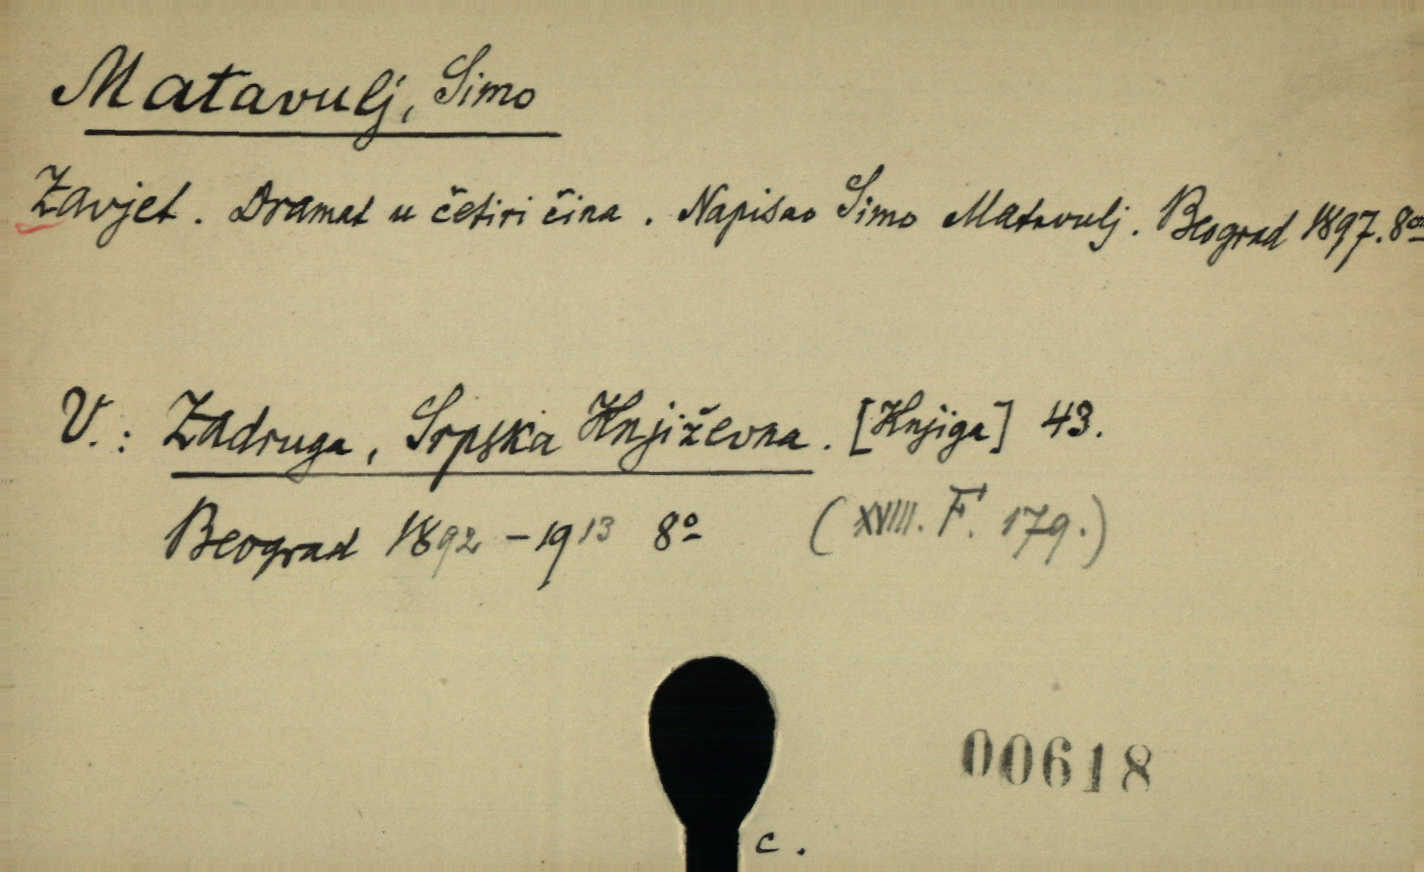 Matavulj, Simo
Zavjet. Dramat u četiri čina. Napisao Simo Matavulj. Beograd 1897. 8º
V.: Zadruga, Srpska Književna. [Knjiga] 43.
Beograd 1892-1913 8º (XVIII. F. 179.)
00618
c.